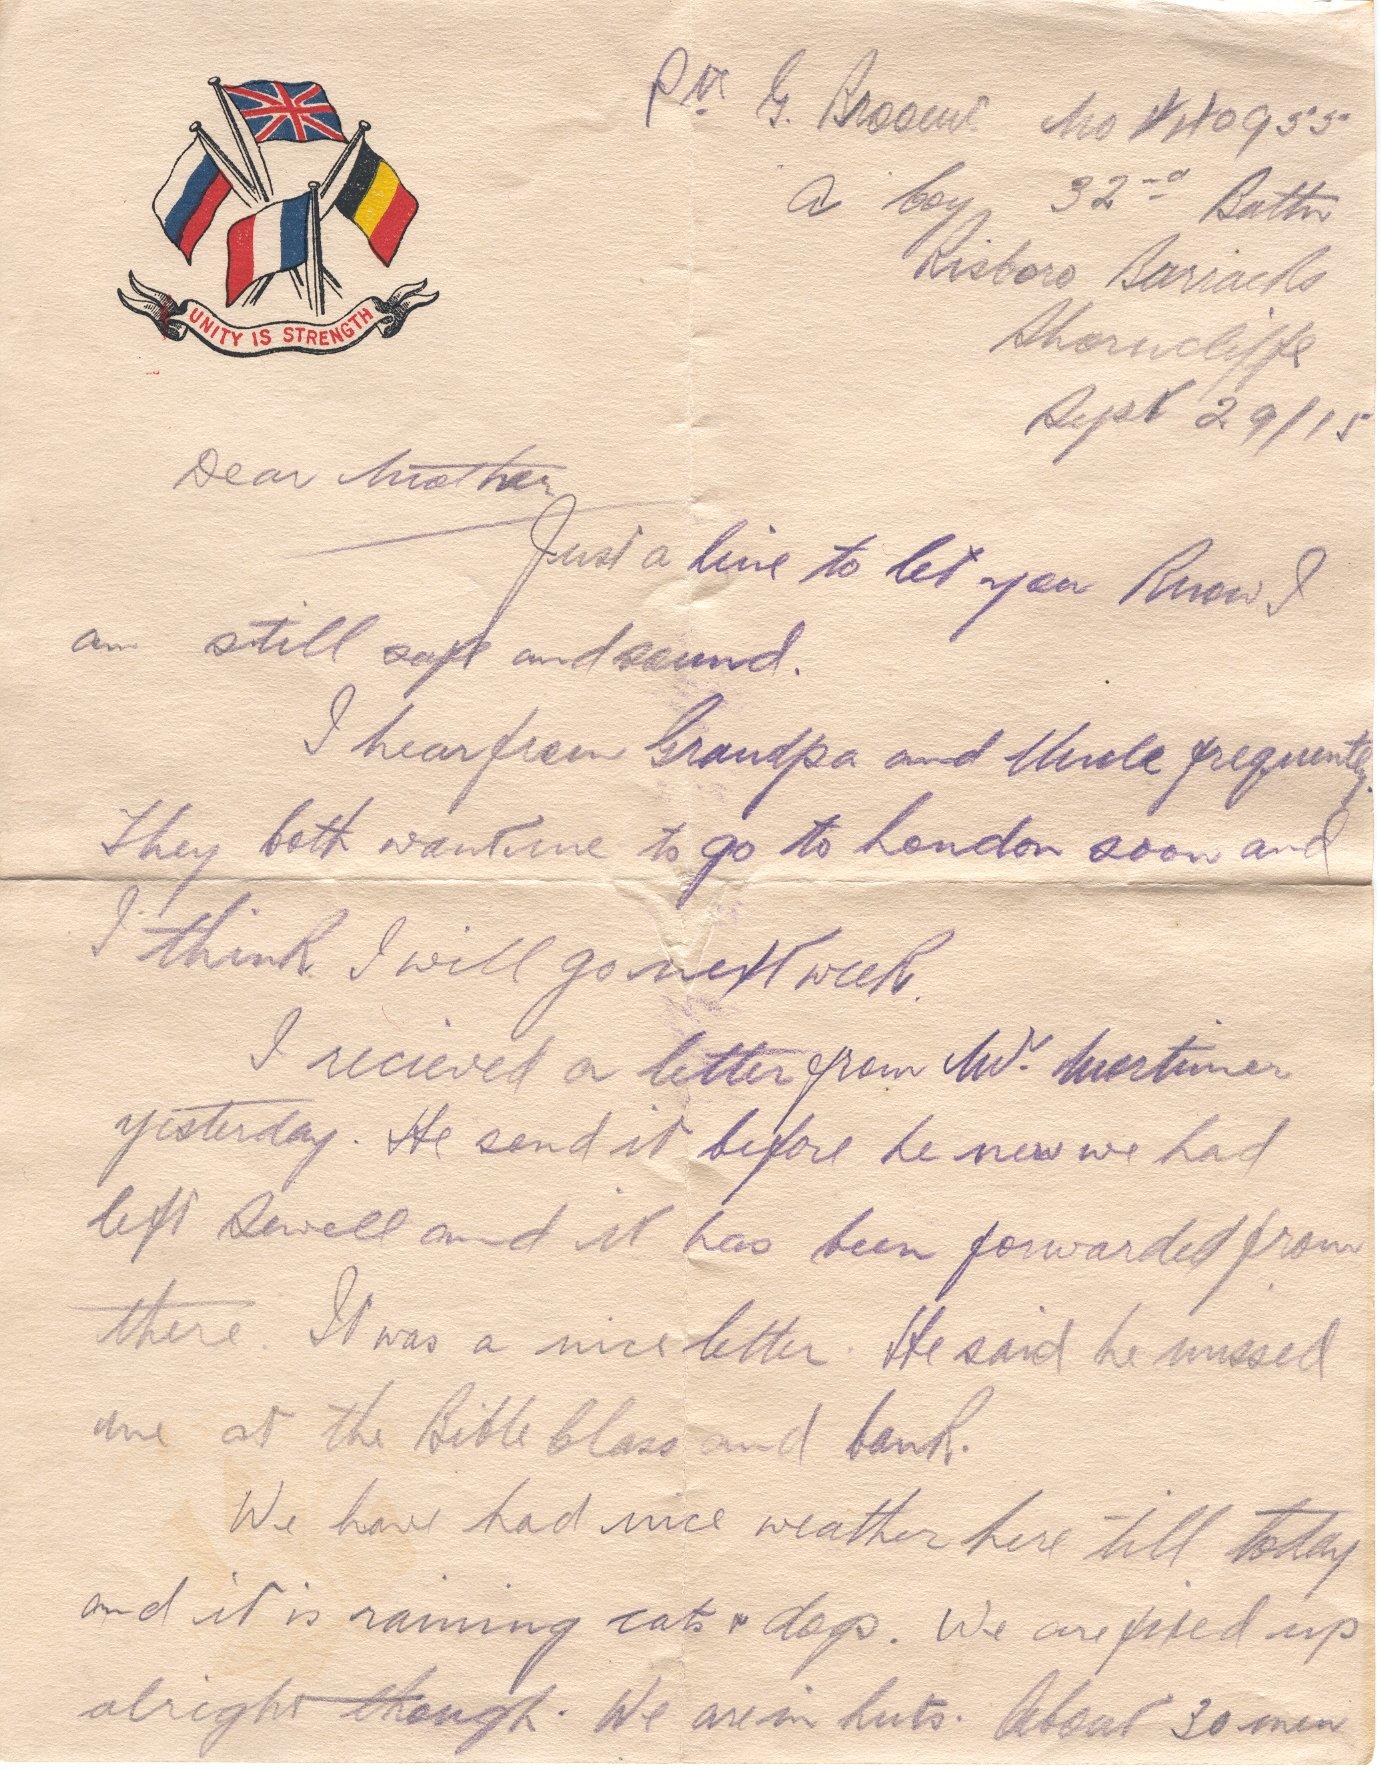 UNITY IS STRENGTH
Pte G. Broome No 440955
A Coy 32nd Battn
Risboro Barracks
Shorncliffe
Sept 29/15
Dear Mother
Just a line to let you know I
am still safe and sound.
I hear from Grandpa and Uncle frequently.
They both want me to go to London soon and
I think I will go next week.
I recieved a letter from Mr. Mortimer
yesterday. He send it before he new we had
left Sewell and it has been forwarded from
there. It was a nice letter. He said he missed
me at the Bible Class and bank.
We have had nice weather here till today
and it is raining cats & dogs. We are fixed up
alright though. We are in huts. About 30 men